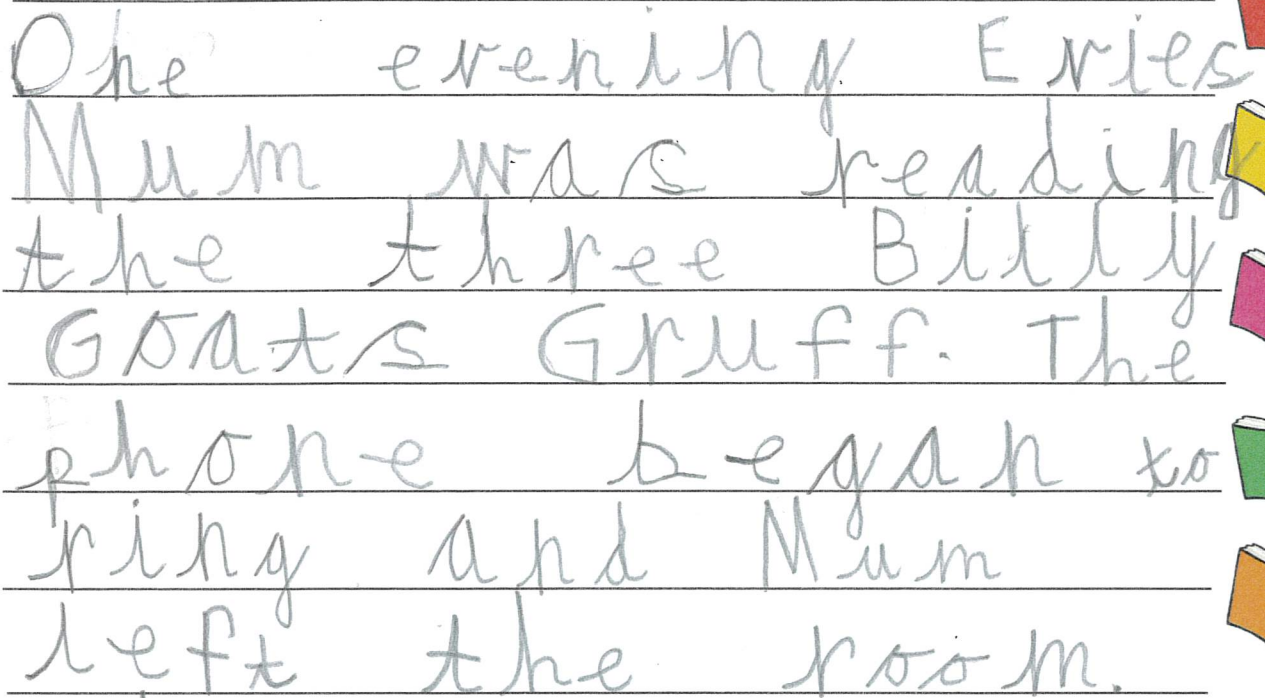 One evening Evies
Mum was reading
the three Billy
Goats Gruff. The
phone began to
ring and Mum
left the room.